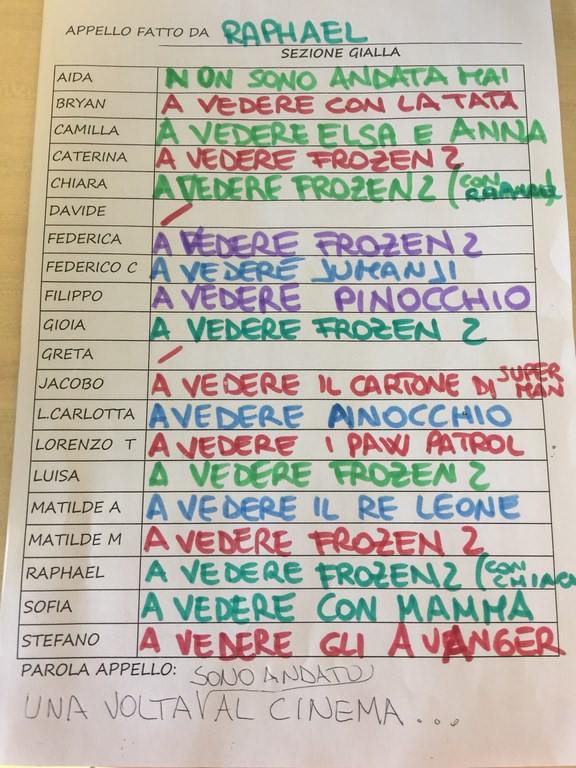 APPELLO FATTO DA RAPHAEL
SEZIONE GIALLA
AIDA NON SONO ANDATA MAI
BRYAN A VEDERE CON LA TATA
CAMILLA A VEDERE ELSA E ANNA
CATERINA A VEDERE FROZEN 2
CHIARA A VEDERE FROZEN 2 (CON
DAVIDE /
FEDERICA A VEDERE FROZEN 2
FEDERICO C A VEDERE JUMANJI
FILIPPO A VEDERE PINOCCHIO
GIOIA A VEDERE FROZEN 2
GRETA /
JACOBO A VEDERE IL CARTONE DI SUPER MAN
L.CARLOTTA A VEDERE PINOCCHIO
LORENZO T A VEDERE I PAW PATROL
LUISA A VEDERE FROZEN 2
MATILDE A A VEDERE IL RE LEONE
MATILDE M A VEDERE FROZEN 2
RAPHAEL A VEDERE FROZEN 2 (CON
SOFIA A VEDERE CON MAMMA
STEFANO A VEDERE GLI AVANGER
PAROLA APPELLO: SONO ANDATO
UNA VOLTA AL CINEMA...